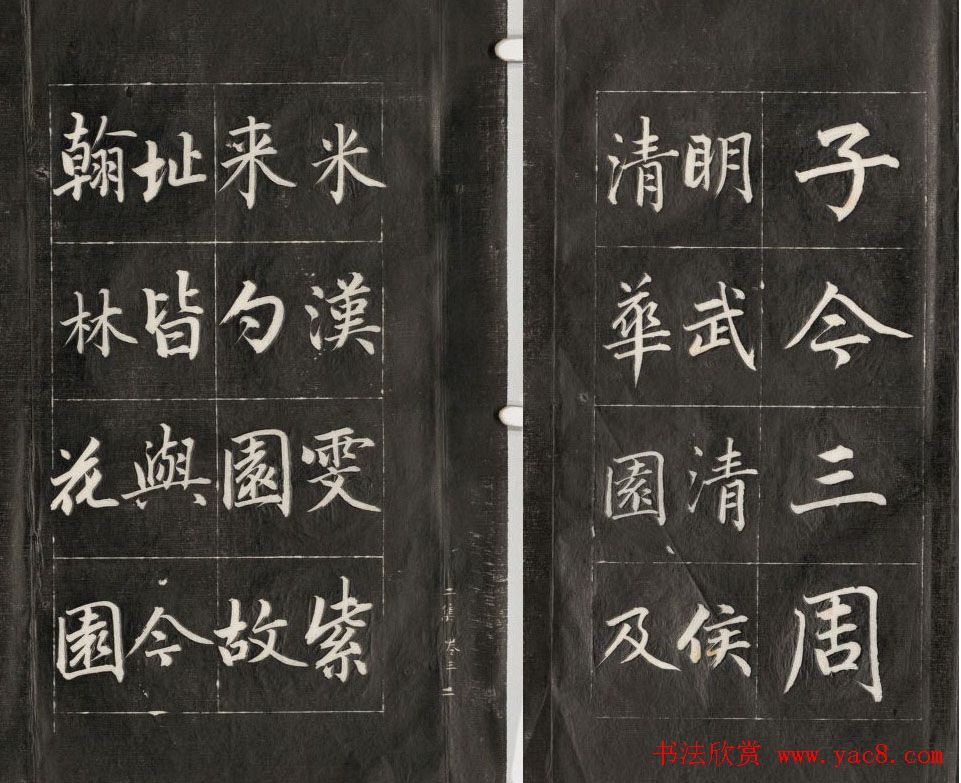 子今三周
眀武清侯
清華園及
米漢雯紫
来勺園故
址皆與今
翰林花園
二集 卷三 二
书法欣赏 www.yac8.com